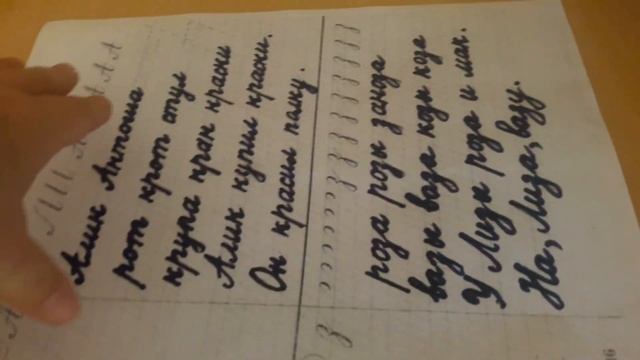 Алик Антоша
рот крот стул
крупа кран краски
Алик купил краски.
Он красил палку.
роза розы
вазы ваза козы коза
У Лизы роза и мак.
На, Лиза, вазу.